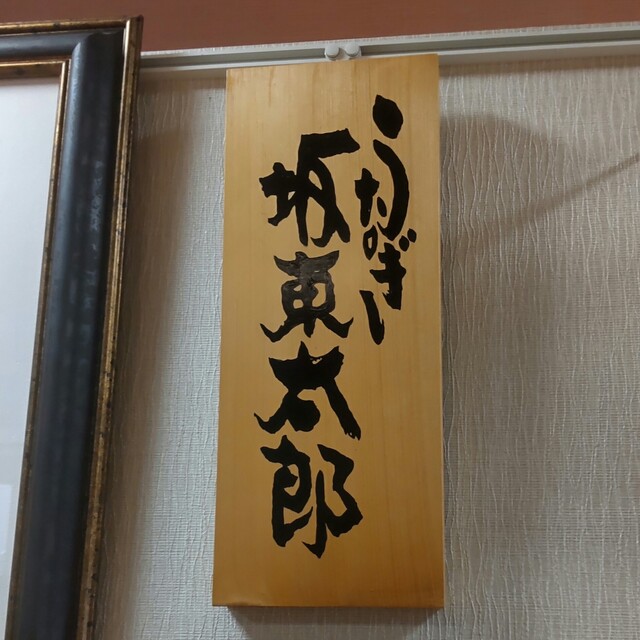 うなぎ
坂東太郎